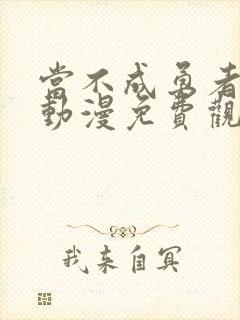 當不成勇者
動漫免費觀
我来自冥